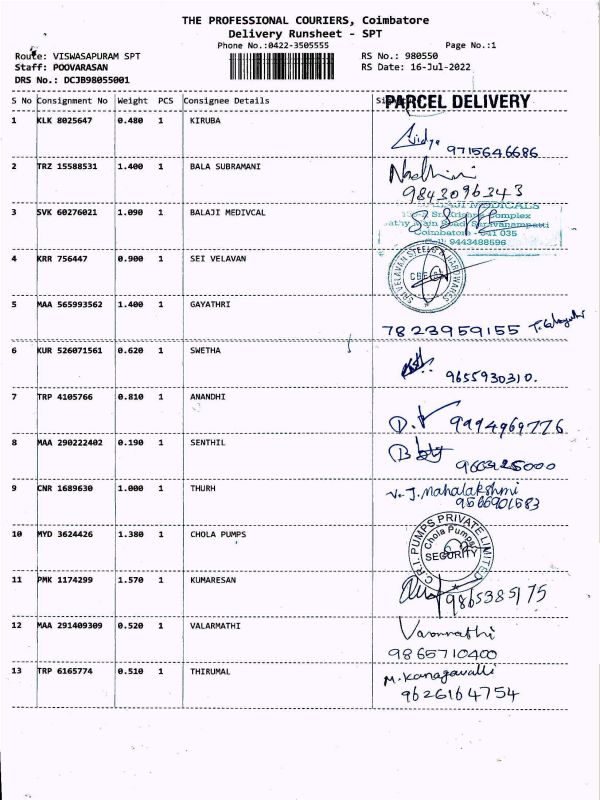 THE PROFESSIONAL COURIERS, Coimbatore
Delivery Runsheet - SPT
Phone No.:0422-3505555 Page No.:1
Route: VISWASAPURAM SPT RS No.: 980550
Staff: POOVARASAN RS Date: 16-Jul-2022
DRS No.: DCJB98055001
S No Consignment No Weight PCS Consignee Details PARCEL DELIVERY
1 KLK 8025647 0.480 1 KIRUBA
9715646686
2 TRZ 15588531 1.400 1 BALA SUBRAMANI Nadhini
9843096343
3 SVK 60276021 1.090 1 BALAJI MEDIVCAL
MEDICALS
Complex
Main Road Saravanampatti
Coimbatore - 641 035
Cell: 9443488596
4 KRR 756447 0.900 1 SEI VELAVAN
SRI VELAVAN STEELS & HARDWARES
CBE
5 MAA 565993562 1.400 1 GAYATHRI
7823959155
6 KUR 526071561 0.620 1 SWETHA
9655930310.
7 TRP 4105766 0.810 1 ANANDHI
9994969776
8 MAA 290222402 0.190 1 SENTHIL
9 CNR 1689630 1.000 1 THURH V. J. Mahalakshmi
9566901583
10 MYD 3624426 1.380 1 CHOLA PUMPS
C.R.I. PUMPS PRIVATE LIMITED
Chola Pumps
SECURITY
11 PMK 1174299 1.570 1 KUMARESAN
9865385175
12 MAA 291409309 0.520 1 VALARMATHI
9865710400
13 TRP 6165774 0.510 1 THIRUMAL M. Kanagavalli
9626164754